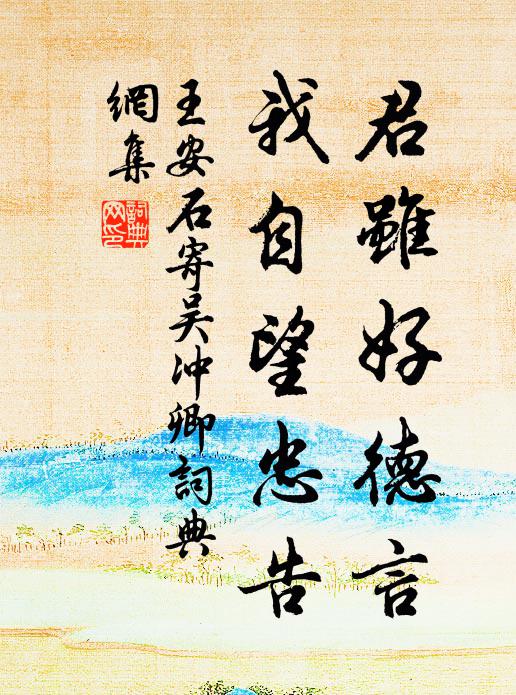 君雖好德言
我自望忠告
王安石寄吴冲卿詞典
網集
詞典
网印